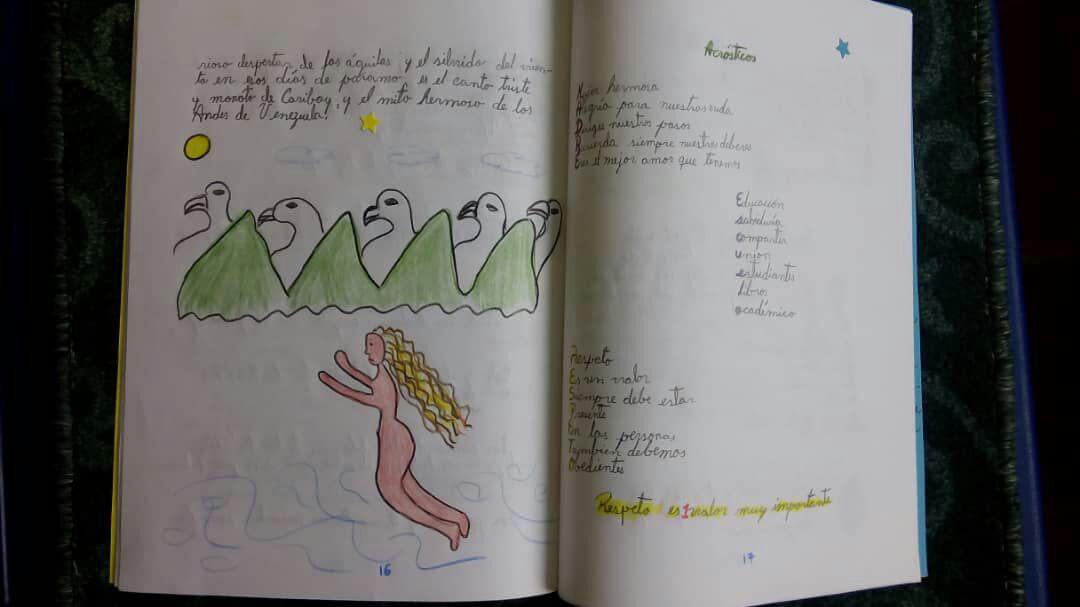 rioso despertar de las águilas; y el silvido del vien-
to en esos días de páramo, es el canto triste
y monoto de Caribay, y el mito hermoso de los
Andes de Venezuela.
16
Acrósticos
Mujer hermosa
Alegria para nuestras vida
Dirige nuestros pasos
Recuerda siempre nuestros deberes
Eres el mejor amor que tenemos
Educación
sabeduria
compartir
union
estudiantes
libros
académico
Respeto
Es un valor
Siempre debe estar
Presente
En las personas
Tambien debemos
Obedientes
Respeto es 1 valor muy importante
17